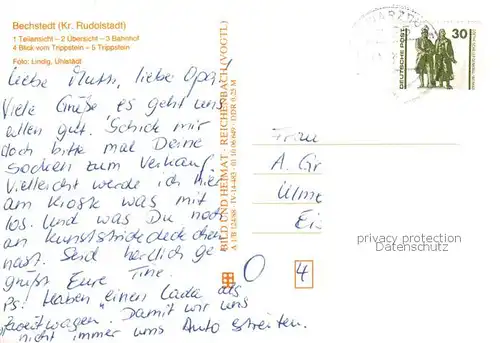 Bechstedt (Kr. Rudolstadt)
1 Teilansicht – 2 Übersicht – 3 Bahnhof
4 Blick vom Trippstein – 5 Trippstein
Foto: Lindig, Uhlstädt
Liebe Mutti, liebe Opa!
Viele Grüße es geht uns
allen gut. Schick mir
doch bitte mal Deine
Socken zum Verkauf.
Vielleicht werde ich hier
am Kiosk was mit
los. Und was Du noch
an Kunststrickdeckchen
hast. Seid herzlich ge
grüßt Eure Tine.
PS: Haben "einen Lada als
Zweitwagen. Damit wir uns
nicht immer ums Auto streiten.
BILD UND HEIMAT REICHENBACH (VOGTL)
A 1/B 1248/88 IV-14-483 01 10 06 649 DDR 0,25 M
DEUTSCHE POST
30
Frau
A. Gr
Ulme
Eis
privacy protection
Datenschutz
0
4